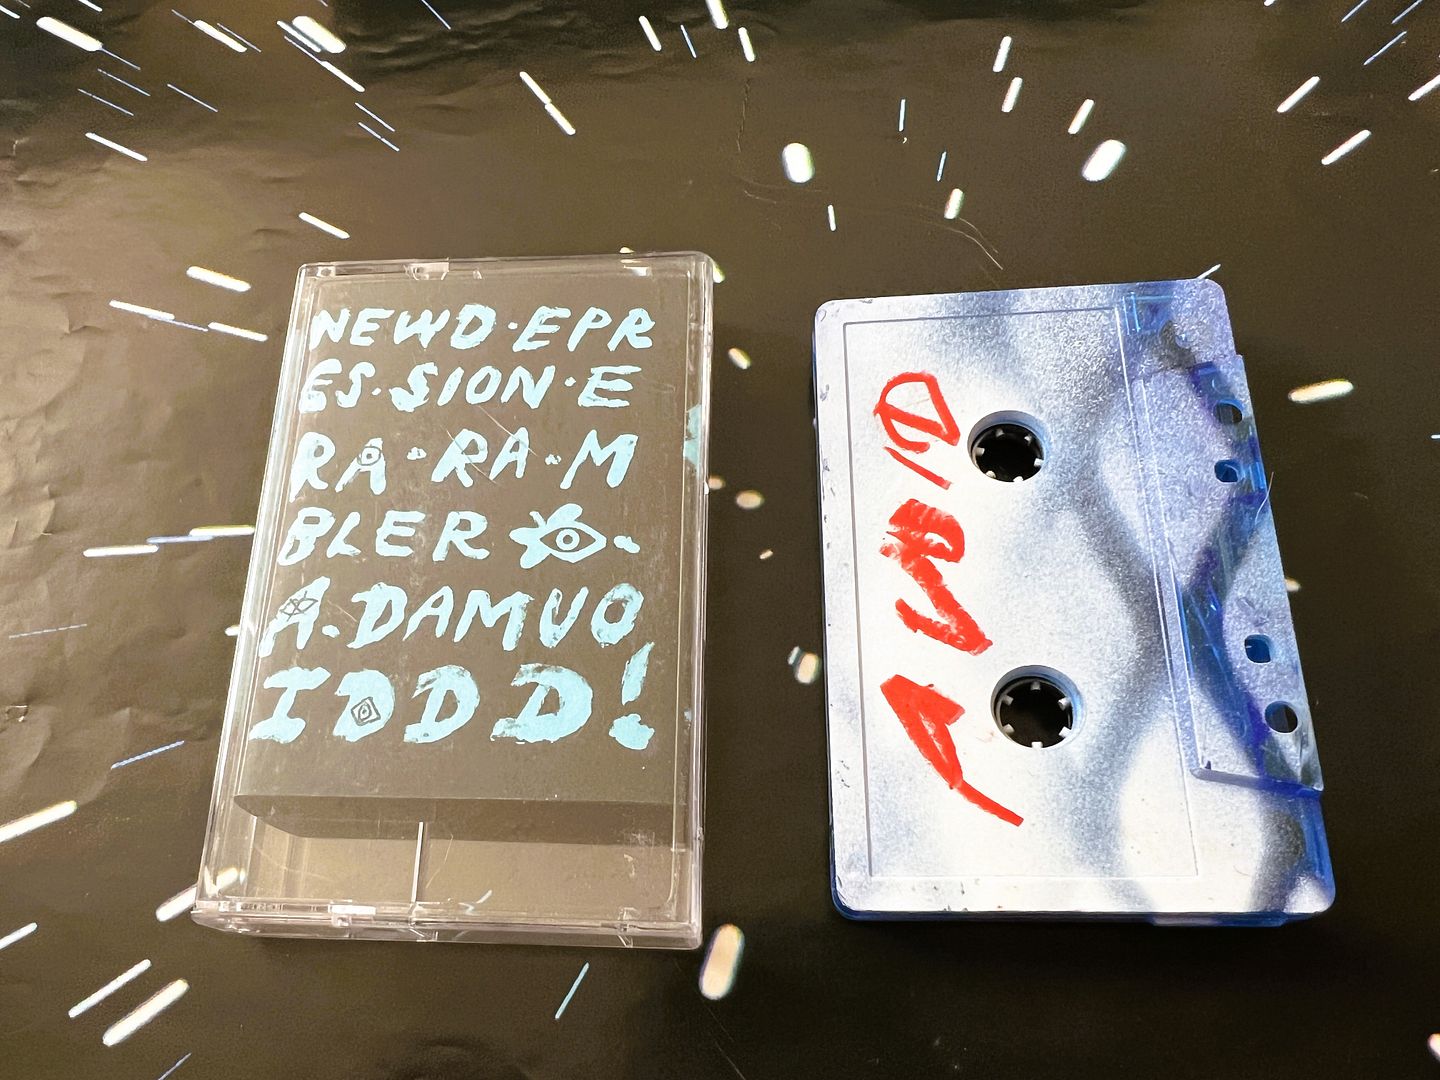 NEWD·EPR
ES·SION·E
RA·RA·M
BLER
A·DAMUO
IDDD!